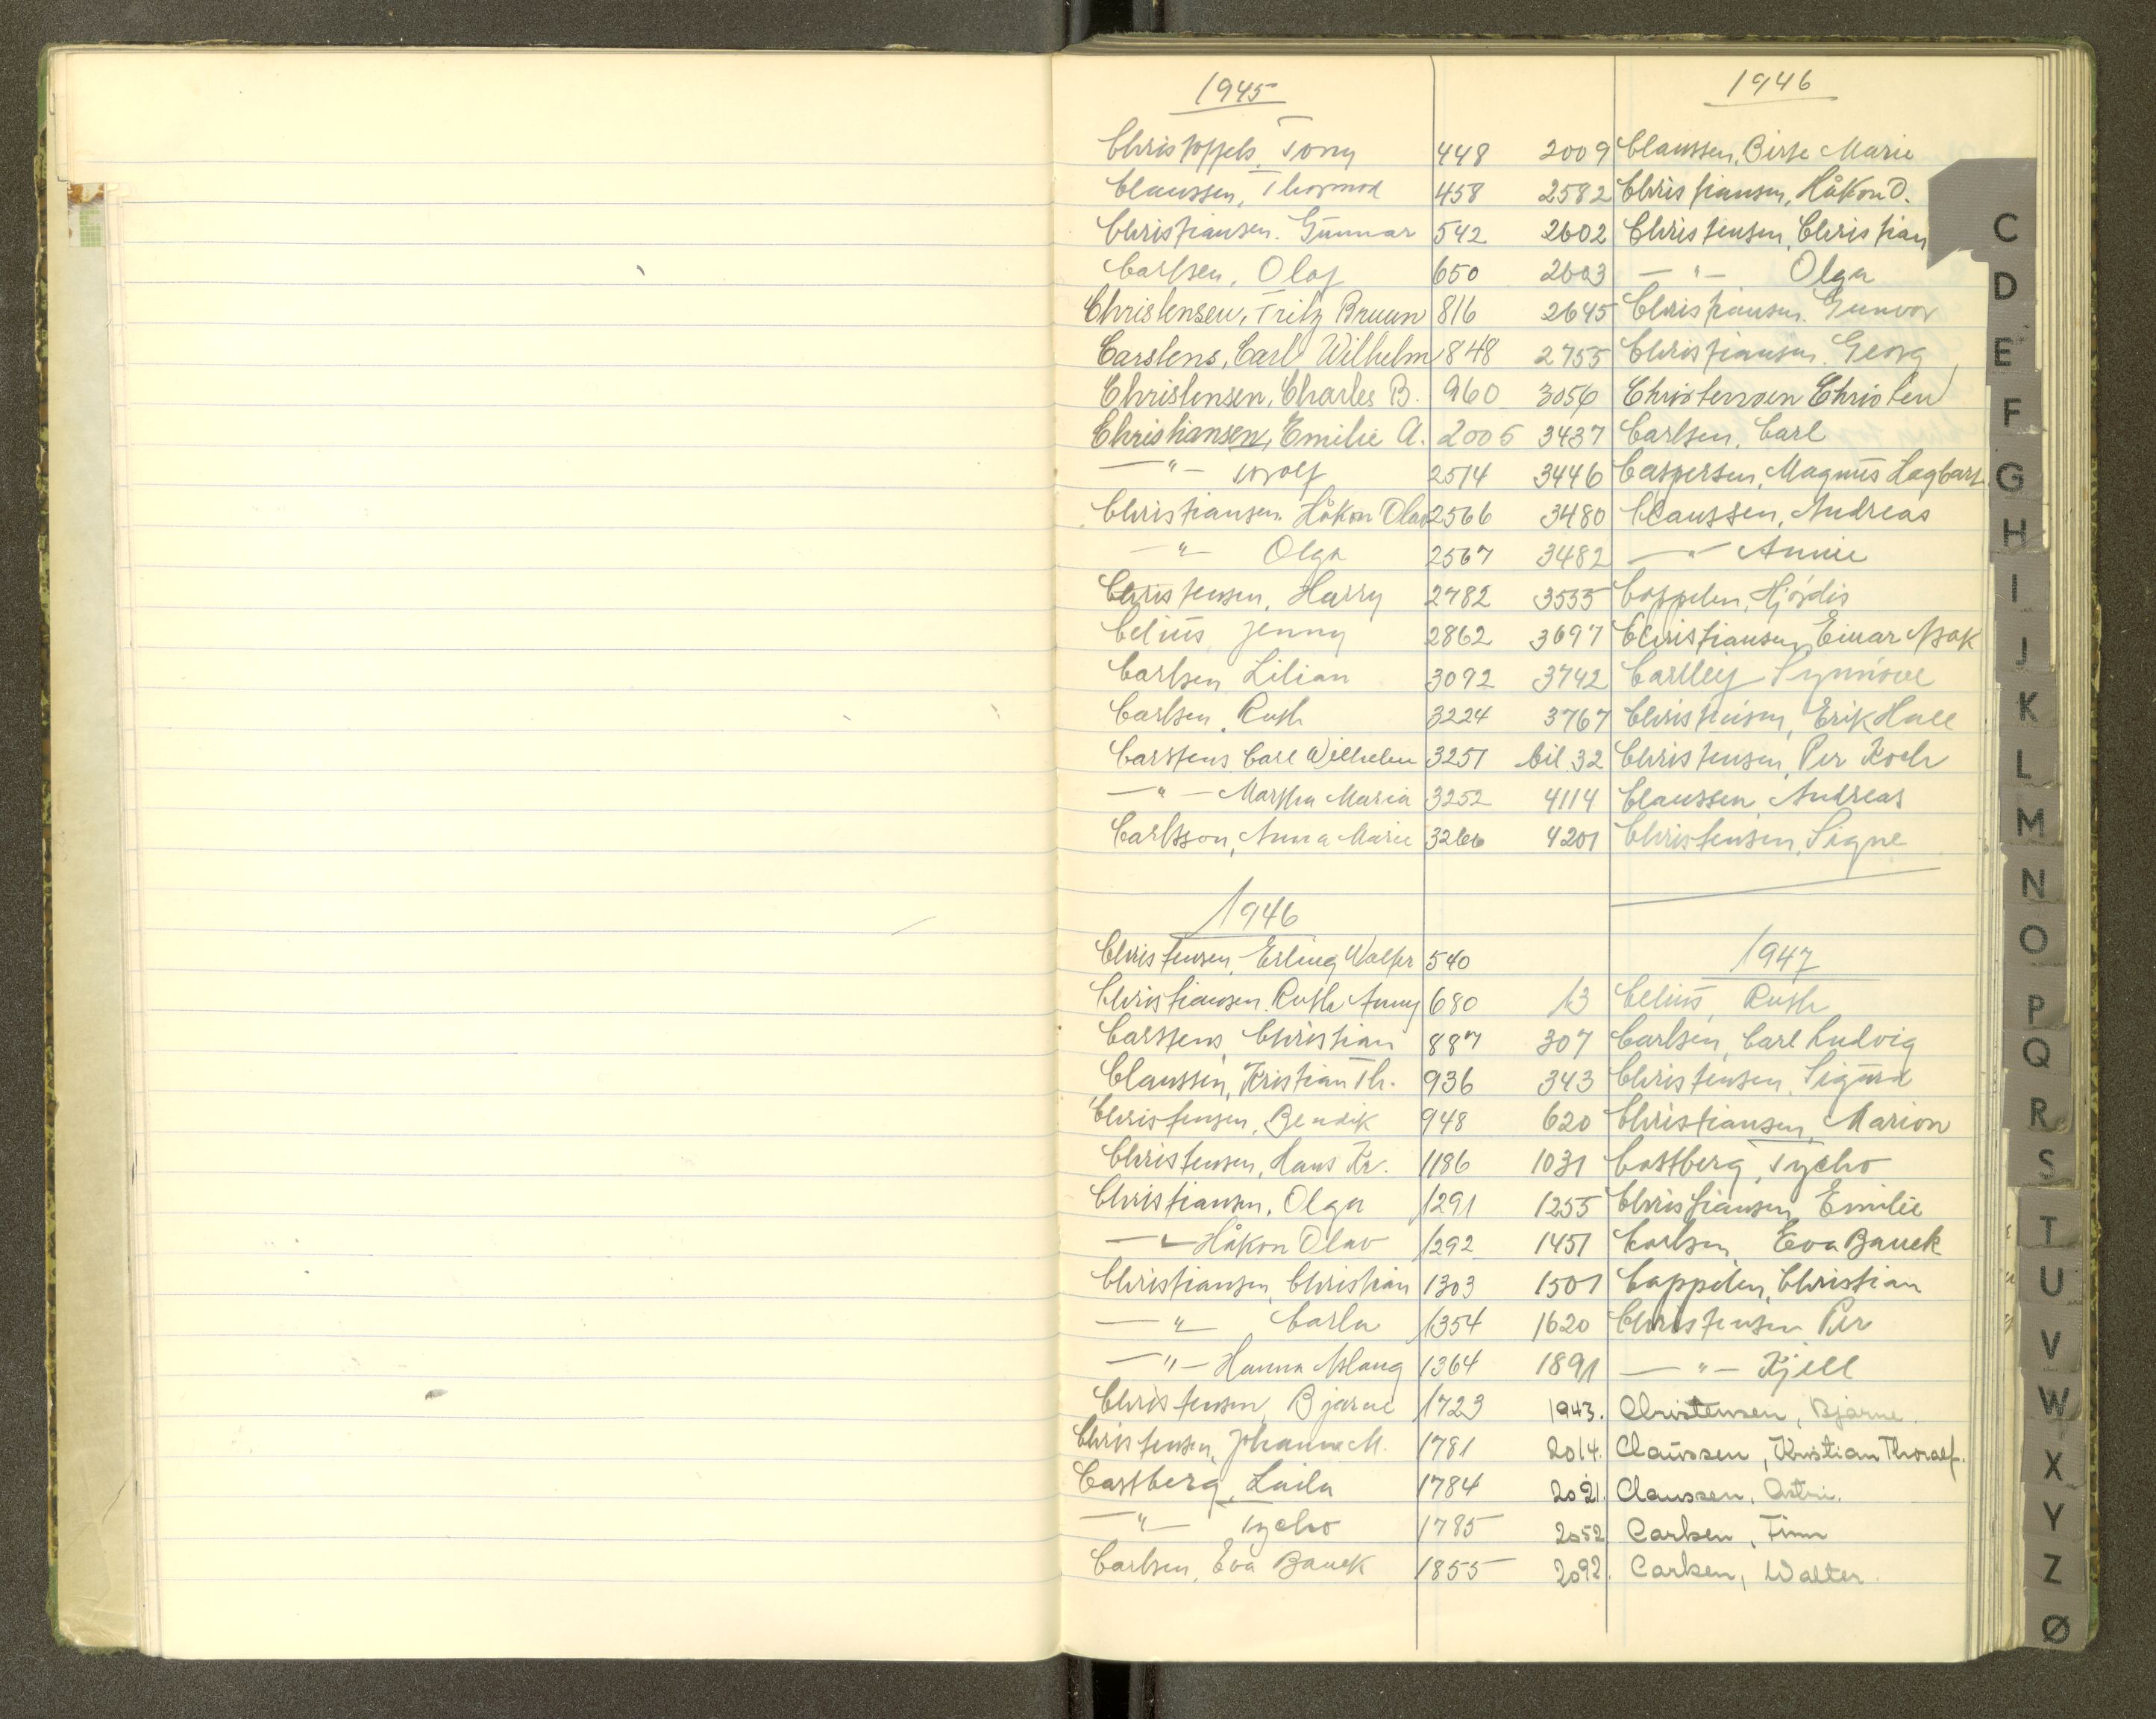 1945
Christoffels, Tony 448
Claussen, Thormod 458
Christiansen, Gunnar 542
Carlsen, Olaf 650
Christensen, Fritz Bruun 816
Carstens, Carl Wilhelm 848
Christensen, Charles B. 960
Christiansen, Emilie A. 2005
—"— Rolf 2514
Christiansen, Håkon Olav 2566
—"— Olga 2567
Christensen, Harry 2782
Celius, Jenny 2862
Carlsen, Lilian 3092
Carlsen, Ruth 3224
Carstens, Carl Wilhelm 3251
—"— Martha Maria 3252
Carlsson, Anna Marie 3266
1946
Christensen, Erling Walter 540
Christiansen, Ruth Anny 680
Carstens, Christian 887
Claussen, Kristian Th. 936
Christensen, Bendik 948
Christensen, Hans Kr. 1186
Christiansen, Olga 1291
—"— Håkon Olav 1292
Christiansen, Christian 1303
—"— Carla 1354
—"— Hanna Aslaug 1364
Christensen, Bjarne 1723
Christensen, Johanne M. 1781
Castberg, Laila 1784
—"— Tycho 1785
Carlsen, Eva Bauck 1855
1946
2009 Claussen, Birte Marie
2582 Christiansen, Håkon O.
2602 Christensen, Christian
2603 —"— Olga
2645 Christiansen, Gunvor
2755 Christiansen, Georg
3056 Christensen Christen
3437 Carlsen, Carl
3446 Caspersen, Magnus Hagbart
3480 Claussen, Andreas
3482 —"— Annie
3535 Cappelen, Hjørdis
3697 Christiansen, Einar Isak
3742 Synnøve
3767 Christensen, Erik Hall
bil. 32 Christensen, Per Koch
4114 Claussen, Andreas
4201 Christensen, Signe
1947
13 Celius, Ruth
307 Carlsen, Carl Ludvig
343 Christensen, Sigurd
620 Christiansen, Marion
1031 Castberg, Tycho
1255 Christiansen, Emilie
1451 Carlsen, Eva Bauck
1501 Cappelen, Christian
1620 Christensen Per
1891 —"— Kjell
1943. Christensen, Bjarne.
2014. Claussen, Kristian Thoralf.
2021. Claussen, Astri.
2052 Carlsen, Finn
2092. Carlsen, Walter.
C
D
E
F
G
H
I
J
K
L
M
N
O
P
Q
R
S
T
U
V
W
X
Y
Z
Ø